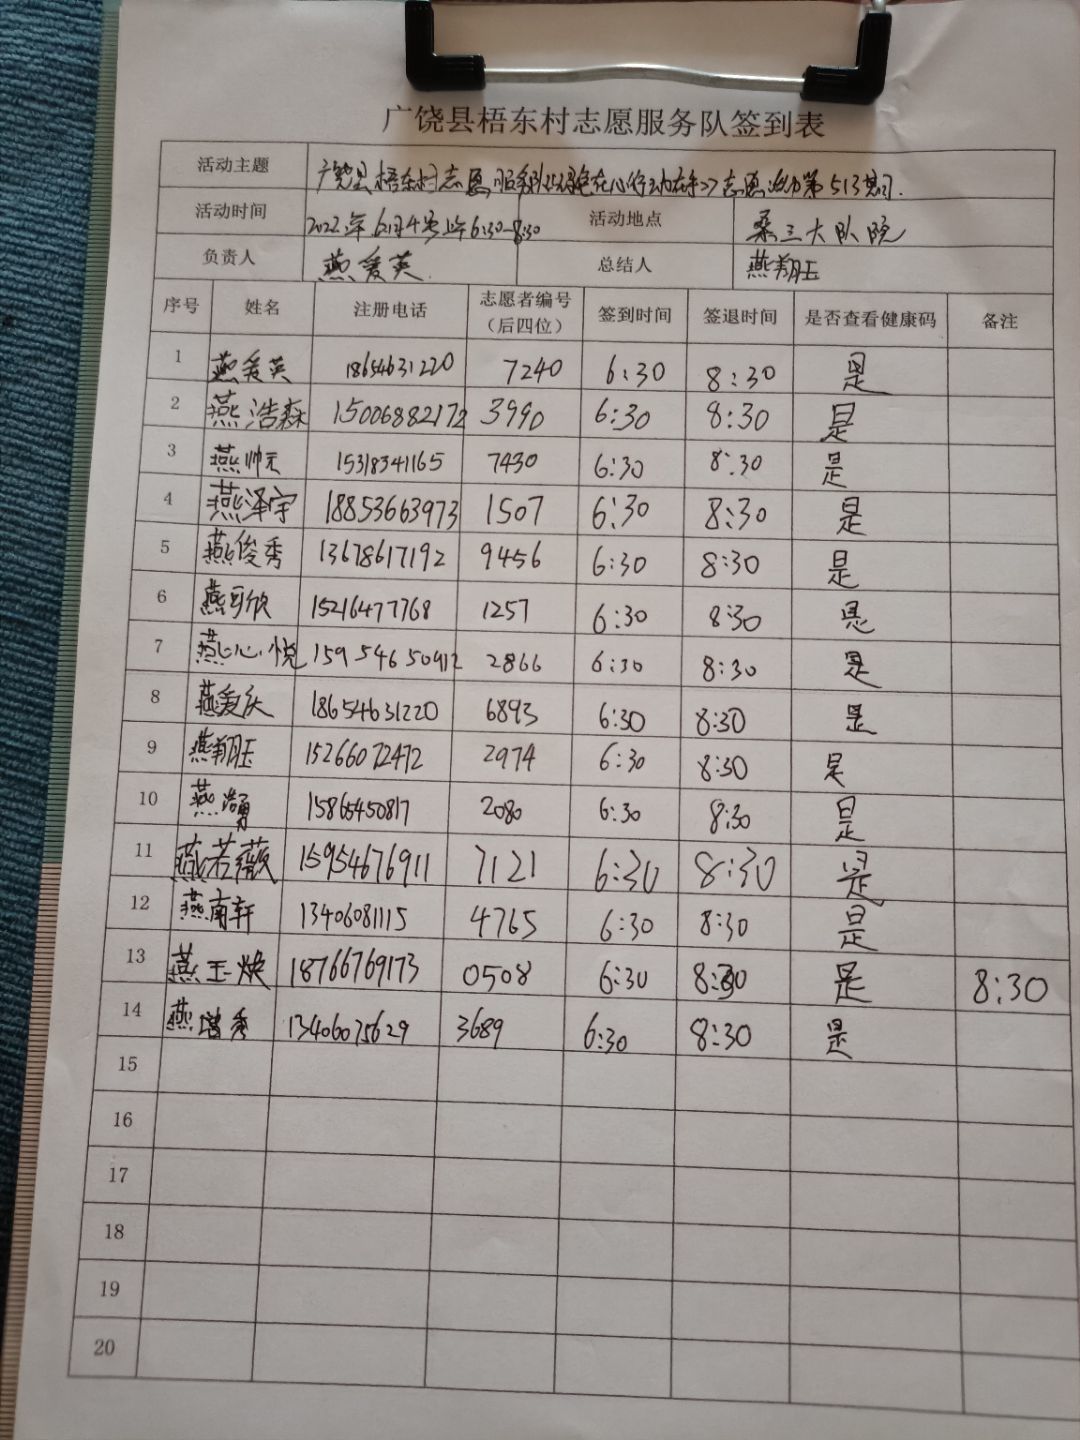 广饶县梧东村志愿服务队签到表
活动主题 广饶县梧东村志愿服务队绿色在心行动在手>>志愿活动第513期
活动时间 2022年6月4号上午6:30-8:30 活动地点 桑三大队院
负责人 燕爱英 总结人 燕翔玉
序号 姓名 注册电话 志愿者编号（后四位） 签到时间 签退时间 是否查看健康码 备注
1 燕爱英 18654631220 7240 6:30 8:30 是
2 燕浩森 15006882172 3990 6:30 8:30 是
3 燕帅元 15318341165 7430 6:30 8:30 是
4 燕泽宇 18853663973 1507 6:30 8:30 是
5 燕俊秀 13678617192 9456 6:30 8:30 是
6 燕可欣 15216477768 1257 6:30 8:30 是
7 燕心悦 15954650912 2866 6:30 8:30 是
8 燕爱庆 18654631220 6893 6:30 8:30 是
9 燕翔玉 15266072472 2974 6:30 8:30 是
10 燕 15865450817 2080 6:30 8:30 是
11 燕若薇 15954676911 7121 6:30 8:30 是
12 燕南轩 13406081115 4765 6:30 8:30 是
13 燕玉焕 18766769173 0508 6:30 8:30 是 8:30
14 燕增秀 13406075629 3689 6:30 8:30 是
15
16
17
18
19
20